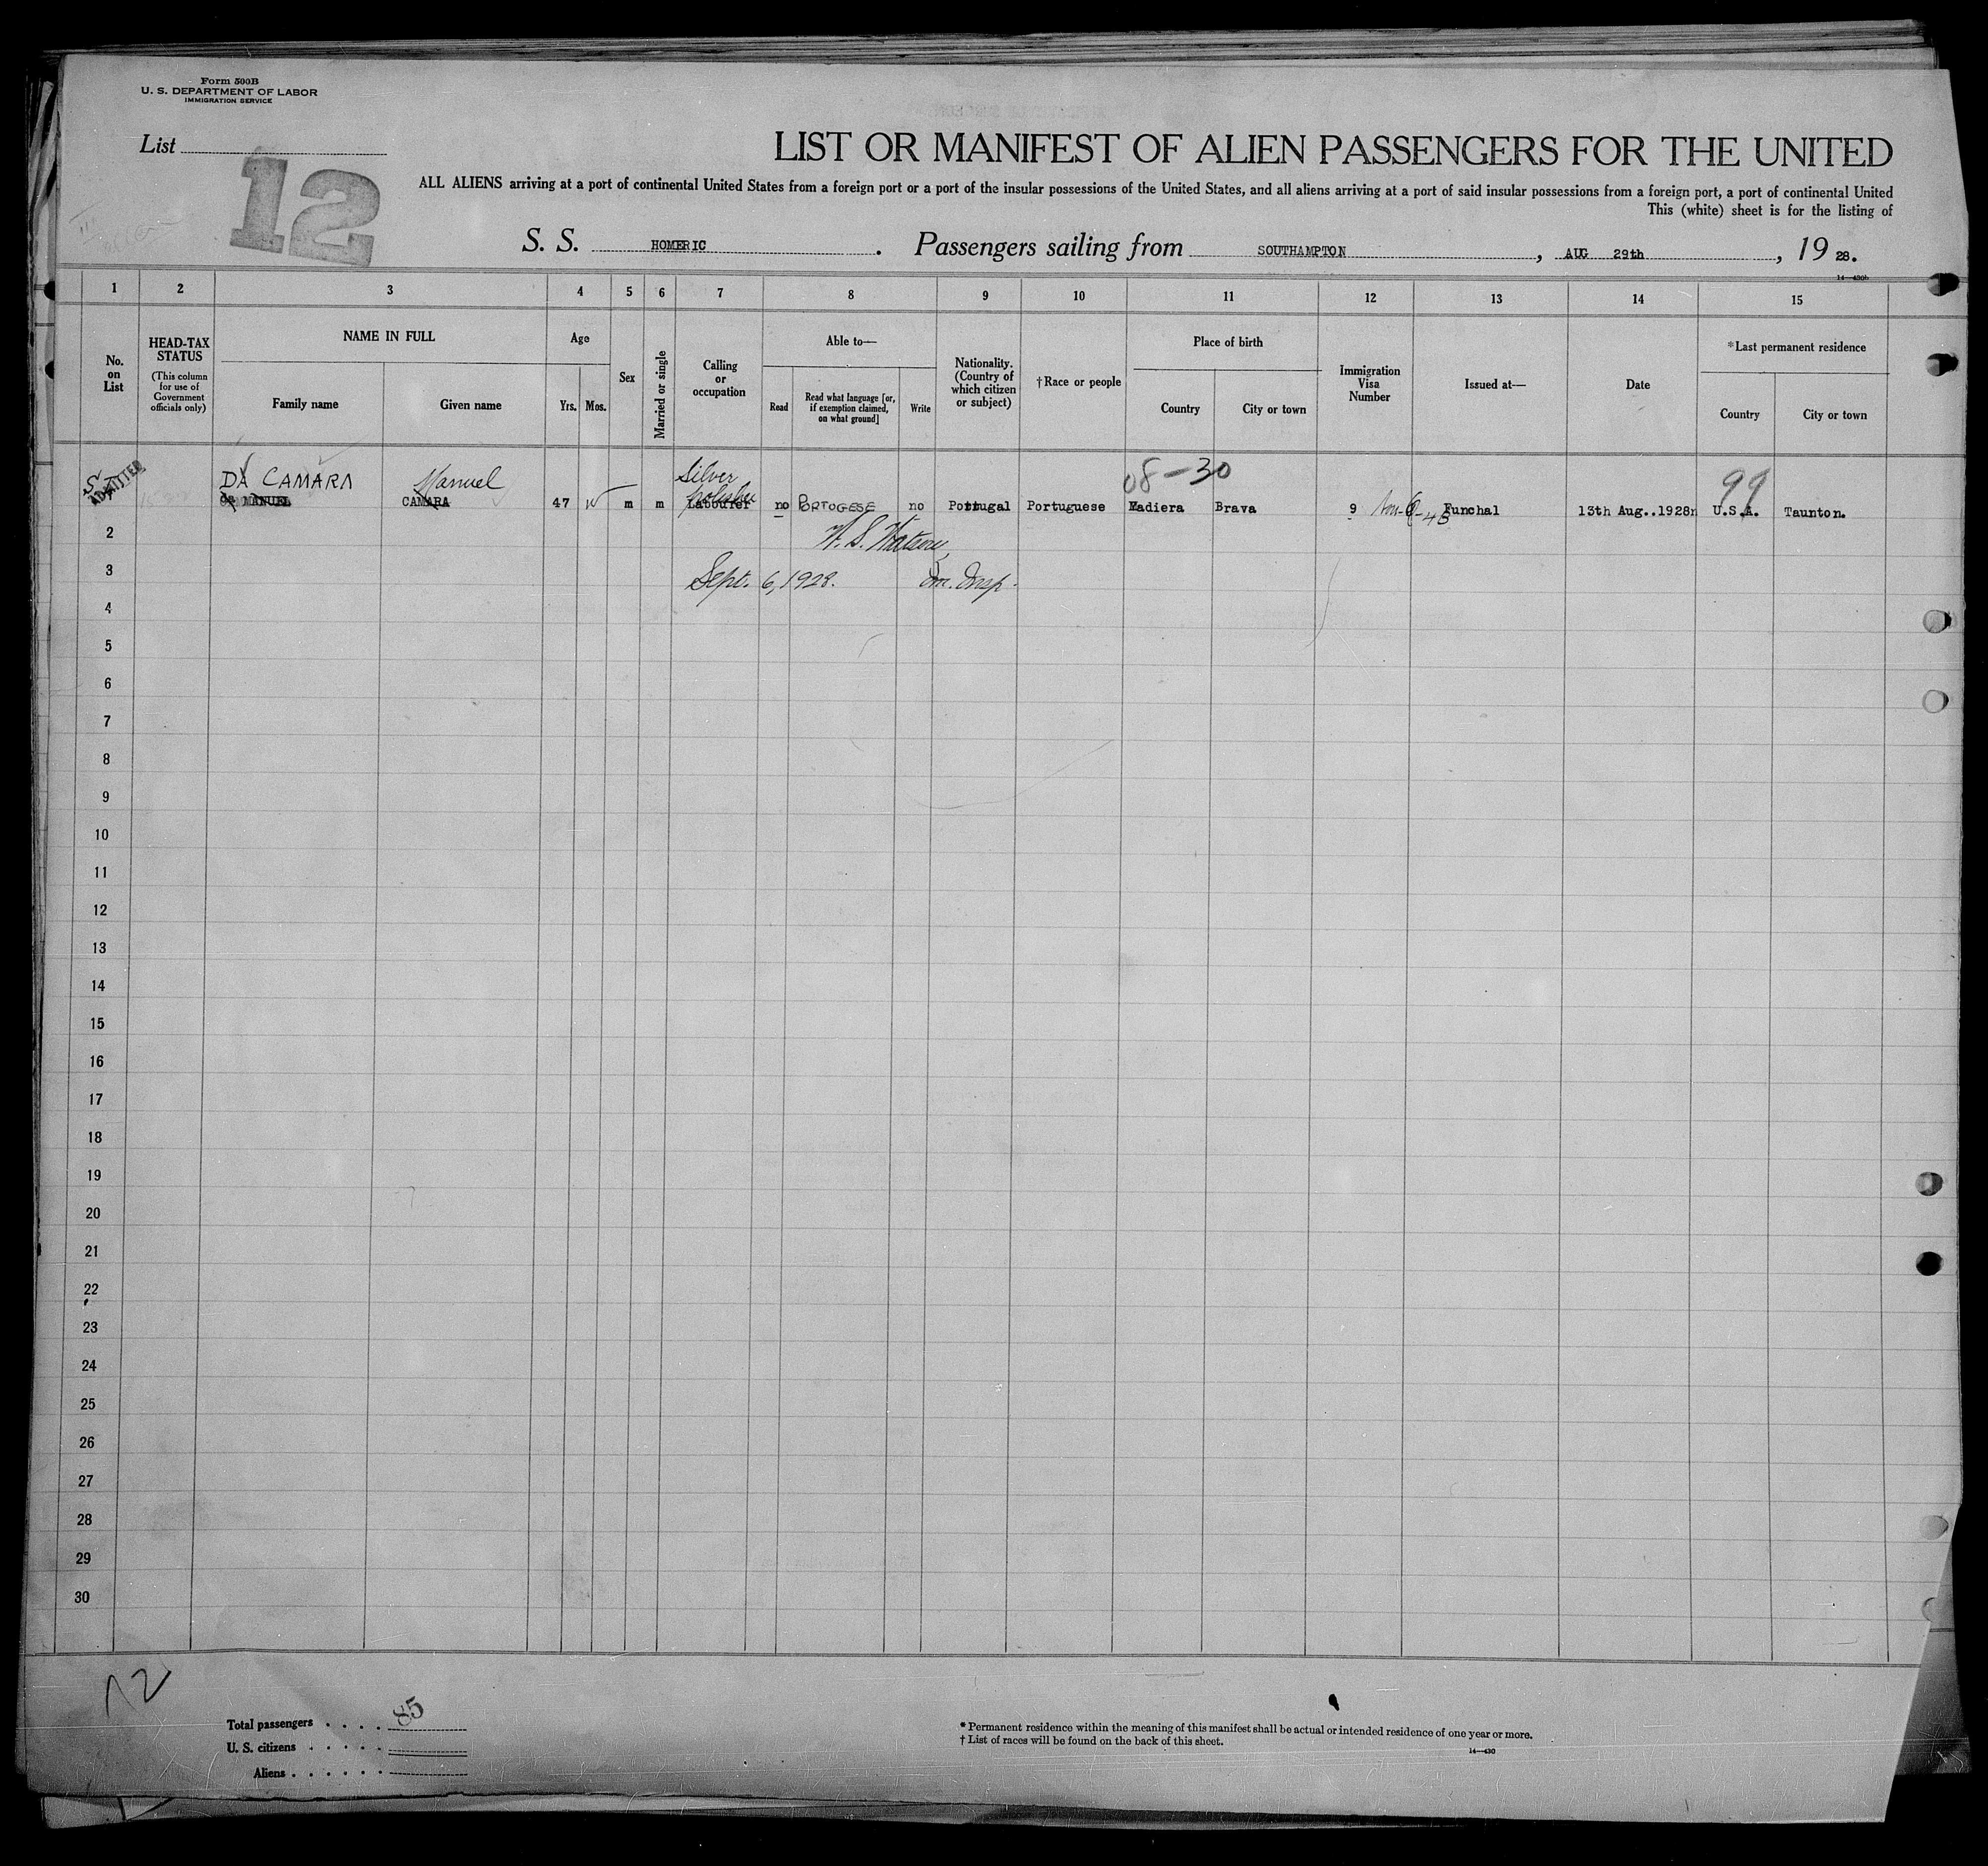 Form 500B
U. S. DEPARTMENT OF LABOR
IMMIGRATION SERVICE
List
12
LIST OR MANIFEST OF ALIEN PASSENGERS FOR THE UNITED
ALL ALIENS arriving at a port of continental United States from a foreign port or a port of the insular possessions of the United States, and all aliens arriving at a port of said insular possessions from a foreign port, a port of continental United
This (white) sheet is for the listing of
S. S. HOMERIC. Passengers sailing from SOUTHAMPTON, AUG 29th, 19 28.
14—430b
1 2 3 4 5 6 7 8 9 10 11 12 13 14 15
No. on List
HEAD-TAX STATUS (This column for use of Government officials only)
NAME IN FULL
Family name Given name
Age
Yrs. Mos.
Sex
Married or single
Calling or occupation
Able to—
Read
Read what language [or, if exemption claimed, on what ground]
Write
Nationality. (Country of which citizen or subject)
†Race or people
Place of birth
Country City or town
Immigration Visa Number
Issued at—
Date
*Last permanent residence
Country City or town
ADMITTED
DA CAMARA Manuel Silver polisher 08-30 99
da MANUEL CAMARA 47 m m Labourer no PORTOGESE no Portugal Portuguese Madiera Brava 9 Non-Q-4B Funchal 13th Aug..1928 U.S.A. Taunton.
2 W. S. Watson,
3 Sept. 6, 1928. Im. Insp.
4
5
6
7
8
9
10
11
12
13
14
15
16
17
18
19
20
21
22
23
24
25
26
27
28
29
30
12
Total passengers . . . . 85
U. S. citizens . . . . .
Aliens . . . . . .
* Permanent residence within the meaning of this manifest shall be actual or intended residence of one year or more.
† List of races will be found on the back of this sheet.
14—430